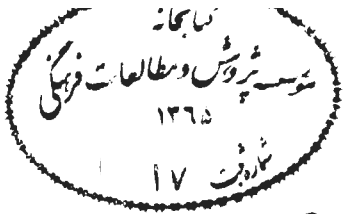 کتابخانه
موسسه پژوهش و مطالعات فرهنگی
۱۳۶۵
شماره ثبت ۱۷